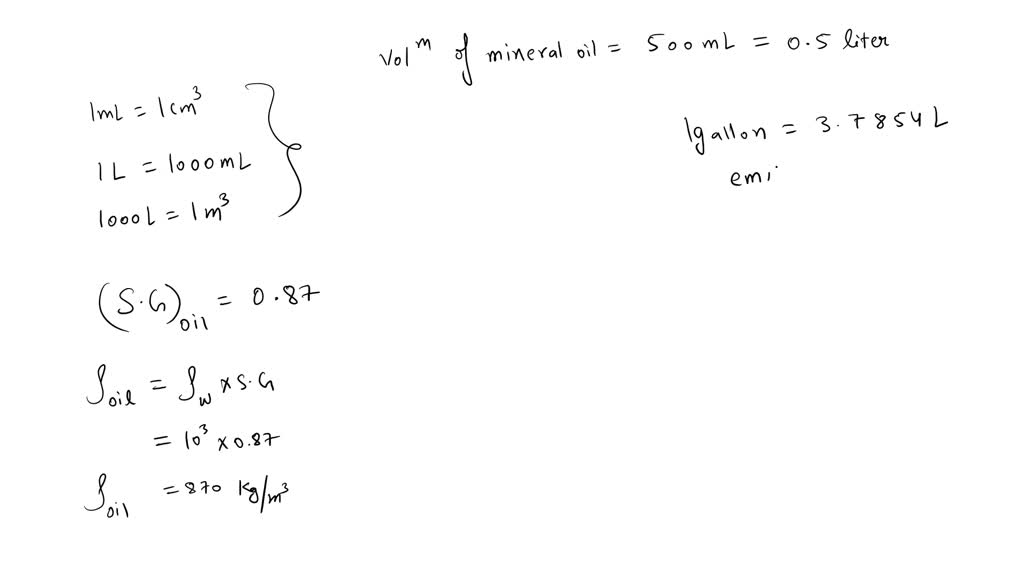 Volᵐ of mineral oil = 500mL = 0.5 liter
1mL = 1cm³
1L = 1000mL
1000L = 1m³
1gallon = 3.7854L
emi
(S.G)oil = 0.87
ρoil = ρw × S.G
= 10³ × 0.87
ρoil = 870 Kg/m³